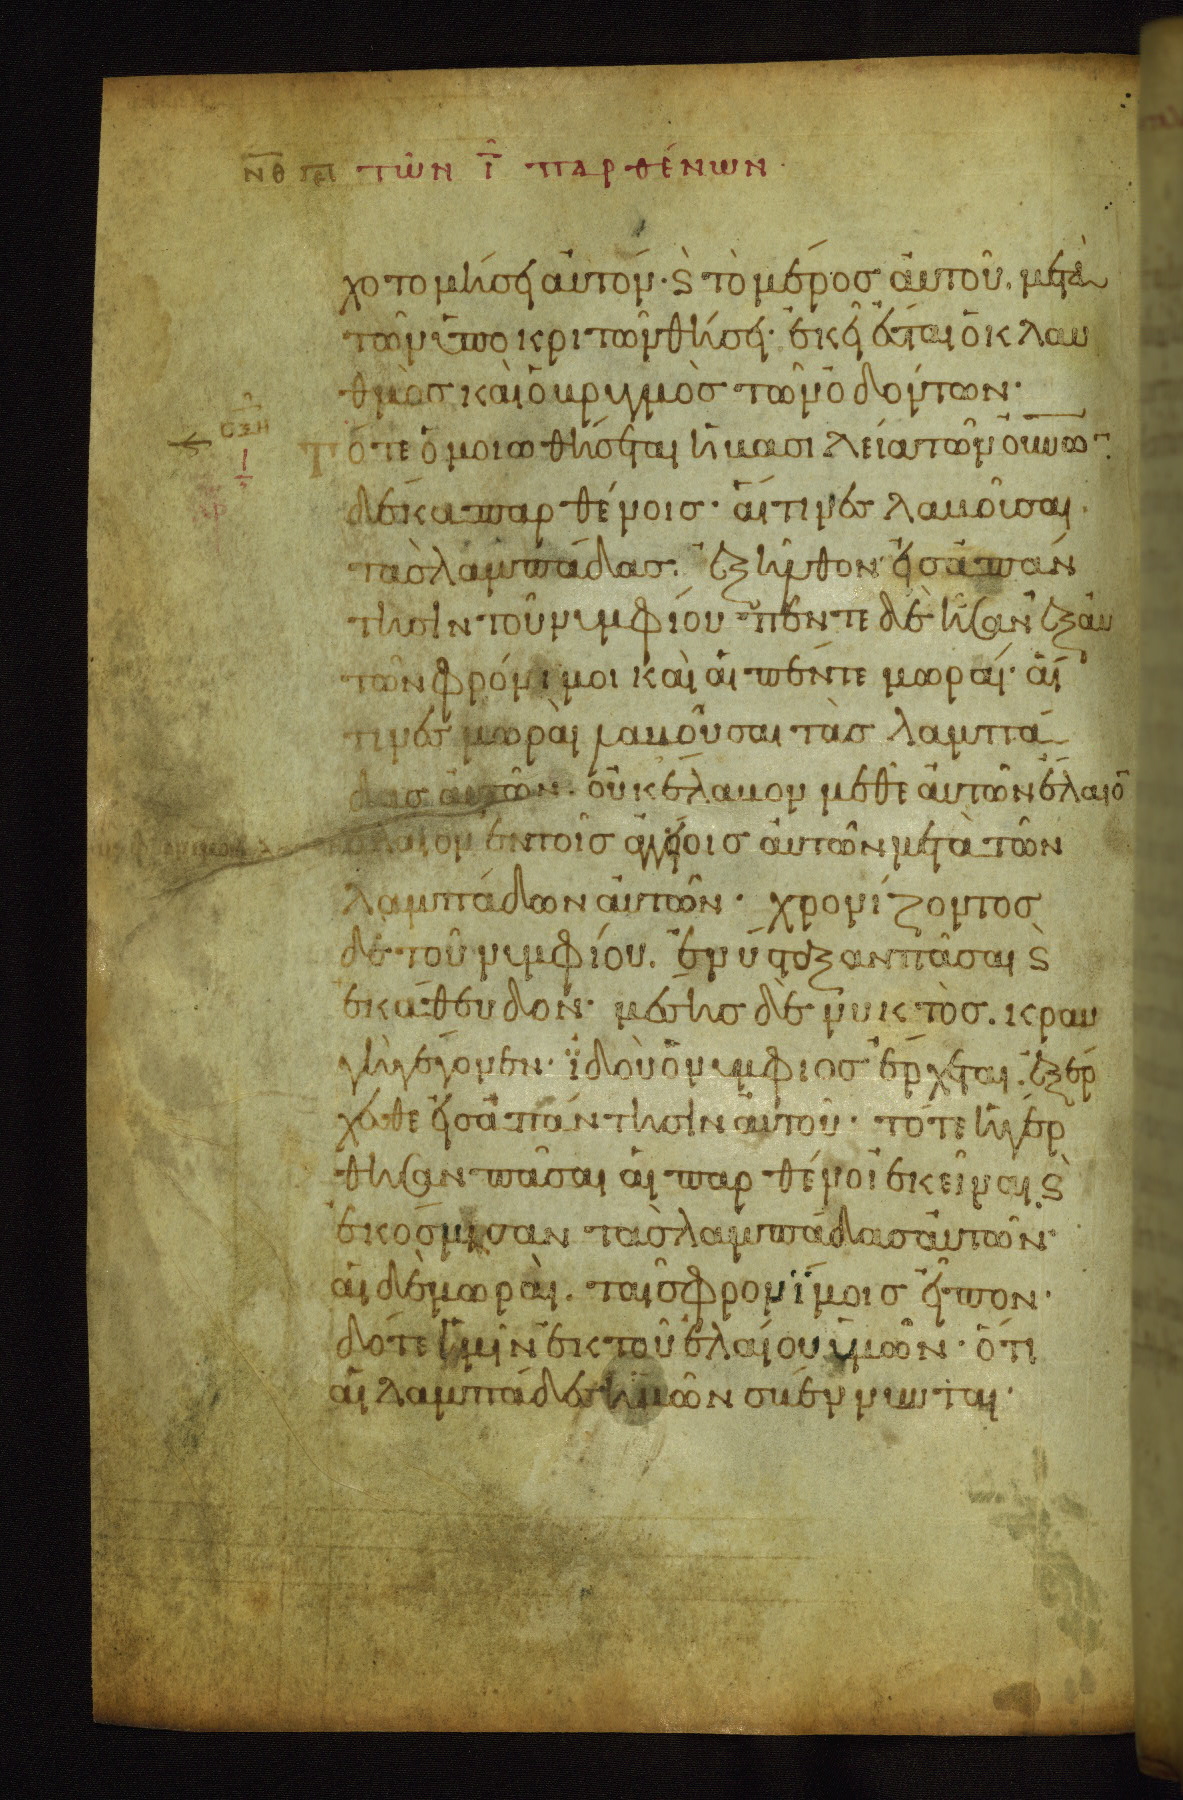 νθ πρ τῶν ῑ παρθένων
χοτομήσει αὐτόν· ϛ τὸ μέρος αὐτοῦ. μετὰ
τῶν ὑποκριτῶν θήσει· ἐκεῖ ἔσται ὁ κλαυ
θμὸς καὶ ὁ βρυγμὸς τῶν ὀδόντων·
σξη
Τότε ὁμοιωθήσεται ἡ βασιλεία τῶν οὐνῶν
δέκα παρθένοις· αἵτινες λαβοῦσαι
τὰς λαμπάδας. ἐξῆλθον εἰς ἀπάν
τησιν τοῦ νυμφίου πέντε δὲ ἦσαν ἐξ αὐ
τῶν φρόνιμοι καὶ αἱ πέντε μωραί· αἵ
τινες μωραὶ λαβοῦσαι τὰς λαμπά
δας αὐτῶν· οὐκ ἔλαβον μεθ' ἑαυτῶν ἔλαιον
ἔλαιον ἐν τοῖς ἀγγείοις αὐτῶν μετὰ τῶν
λαμπάδων αὐτῶν· χρονίζοντος
δὲ τοῦ νυμφίου. ἐνύσταξαν πᾶσαι ϛ
ἐκάθευδον· μέσης δὲ νυκτὸς. κραυ
γὴ γέγονεν· ἰδοὺ ὁ νυμφίος ἔρχεται. ἐξέρ
χεσθε εἰς ἀπάντησιν αὐτοῦ· τότε ἠγέρ
θησαν πᾶσαι αἱ παρθένοι ἐκεῖναι ϛ
ἐκόσμησαν τὰς λαμπάδας αὐτῶν·
αἱ δὲ μωραὶ. ταῖς φρονίμοις εἶπον·
δότε ἡμῖν ἐκ τοῦ ἐλαίου ὑμῶν· ὅτι
αἱ λαμπάδες ἡμῶν σβέννυνται·